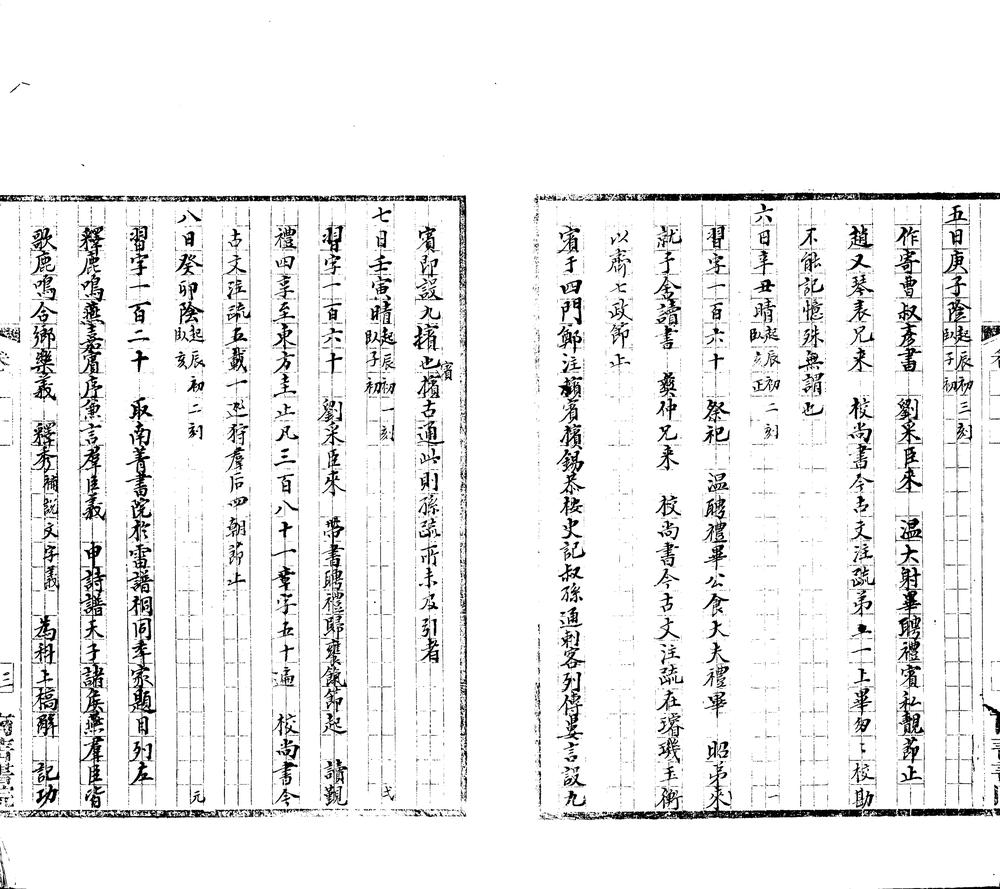 五日庚子陰起辰初三刻臥子初
作寄曹叔彥書　劉采臣來　温大射畢聘禮賓私覿節止
趙又琴表兄來　校尚書今古文注疏弟一上畢勿〻校勘
不能記憶殊無謂也
六日辛丑晴起辰初二刻臥亥正
習字一百六十　祭祀　温聘禮畢公食大夫禮畢　昭弟來
就予舍讀書　奠仲兄來　校尚書今古文注疏在璿璣玉衡
以齊七政節止
賓于四門鄭注賓擯錫恭桉史記叔孫通刺客列傳婁言設九
賓即設九擯也擯賓古通此則孫疏所未及引者
七日壬寅晴起辰初一刻臥子初
習字一百六十　劉采臣來　帶書聘禮歸饔餼節起　讀覲
禮四享至東方圭止凡三百八十一章字五十遍　校尚書今
古文注疏五載一巡狩羣后四朝節止
八日癸卯陰起辰初二刻臥亥
習字一百二十　取南菁書院於雷譜桐同年家題目列左
釋鹿鳴燕嘉賓序兼言羣臣義　申詩譜天子諸矦燕羣臣皆
歌鹿鳴合鄉樂義　釋秀補説文字義　為科上槁解　記功